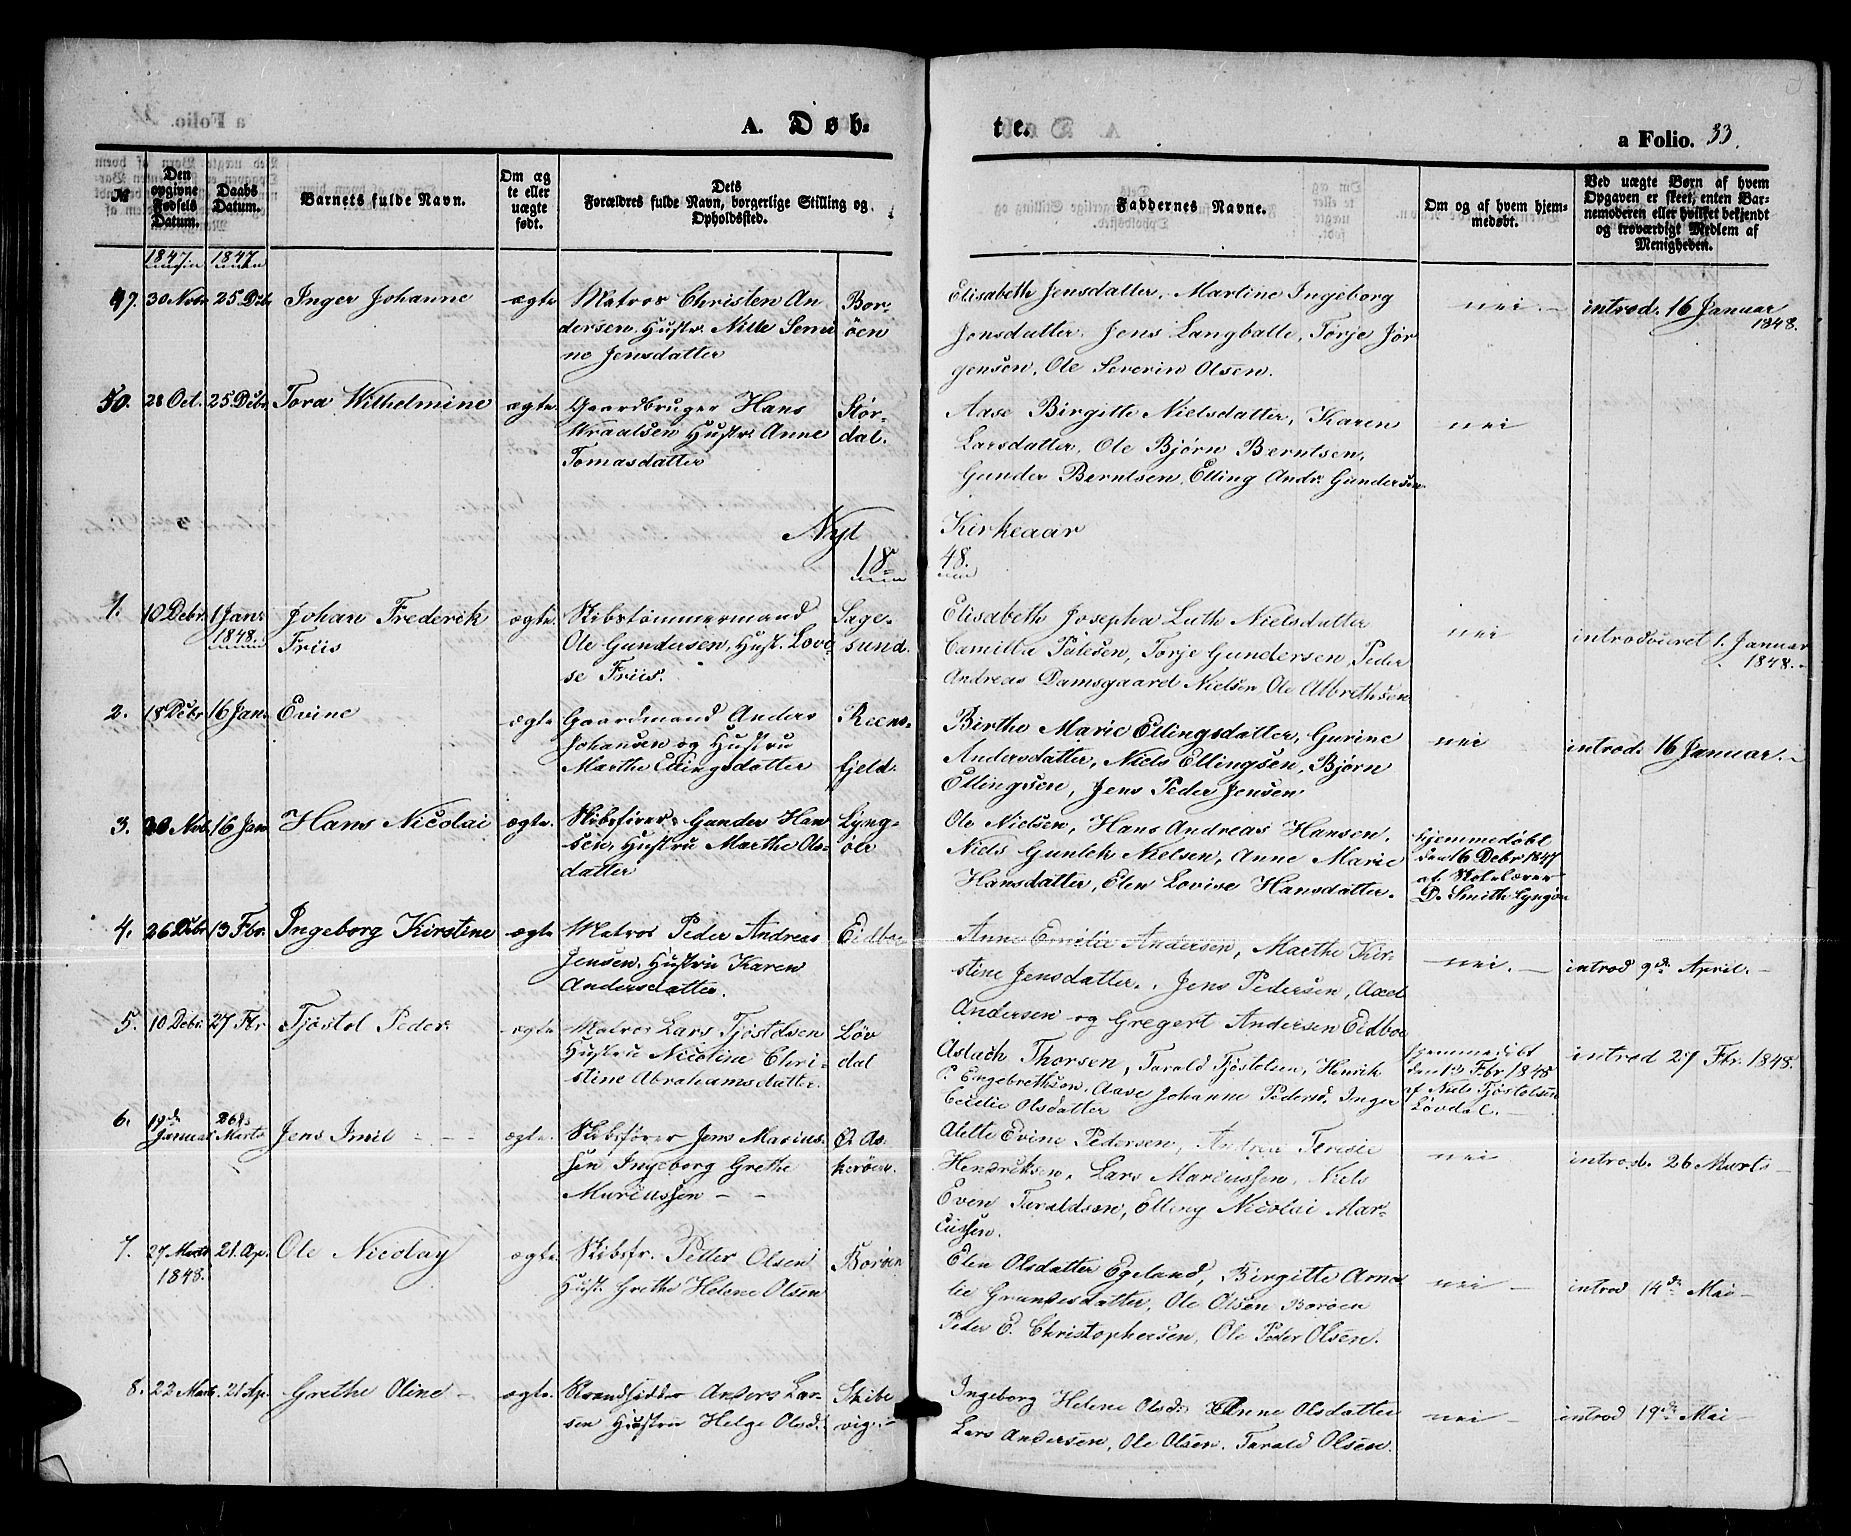 A. Døb-
te.
a Folio. 33.
№
Den opgivne Fødsels Datum.
Daabs Datum.
Barnets fulde Navn.
Om ægte eller uægte født.
Dets Forældres fulde Navn, borgerlige Stilling og Opholdssted.
Faddernes Navne.
Om og af hvem hjemmedøbt.
Ved uægte Børn af hvem Opgaven er skeet, enten Barnemoderen eller hvilket bekjendt og troværdigt Medlem af Menigheden.
1847. 1847.
30 Nvbr 25 Dbr Inger Johanne ægte Matros Christen An- Bor-
dersen, Hustr. Nille Seri øen
ne Jensdatter
Elisabeth Jensdatter, Martine Ingeborg
Jensdatter, Jens Langballe, Torje Jør
gensen, Ole Severin Olsen.
nei. introd. 16 Januar
1848.
50. 28 Oct. 25 Debr. Tora Wilhelmine ægte Gaardbruger Hans Stør-
Wraalsen Hustr. Anne dal.
Tomasdatter
Aase Birgitte Nielsdatter, Karen
Larsdatter, Ole Bjørn Berntsen,
Gunder Berntsen, Elling Andr. Gundersen
nei
Nyt Kirkeaar
18 48.
1. 10 Debr. 1 Jan. Johan Frederik ægte. Skibstømmermand Sage-
1848. Friis Ole Gundersen, Hust. Lovi- sund.
se Friis.
Elisabeth Josepha Luth Nielsdatter
Camilla Palesen, Torje Gundersen, Peder
Andreas Damsgaard Nielsen, Ole Albrethsen
nei introduceret 1. Januar
1848.
2. 18 Debr 16 Jan. Evine ægte Gaardmand Anders Reens-
Johansen og Hustru
Marthe Ellingsdatter fjeld.
Birthe Marie Ellingsdatter, Gurine
Andersdatter, Niels Ellingsen, Bjørn
Ellingsen, Jens Peder Jensen
nei introd. 16 Januar.
3. 20 Nvb. 16 Jan Hans Nicolai ægte. Skibsfører Gunder Han Lyng-
sen, Hustru Marthe Ols- øer
datter
Ole Nielsen, Hans Andreas Hansen,
Niels Gunleh Nielsen, Anne Marie
Hansdatter, Elen Lovise Hansdatter.
hjemmedøbt
den 16 Debr 1847
af Skolelærer
D. Smith Lyngøer
4. 26 Debr 13 Fbr. Ingeborg Kirstine ægte Matros Peder Andreas Eidboe
Jensen, Hustru Karen
Andersdatter.
Anne Emilie Andersen, Marthe Kir-
stine Jensdatter, Jens Pedersen, Axel
Andersen og Gregert Andersen Eidboe
nei. introd 9de April.
5. 10 Debr. 27 Fbr Tjøstol Peder ægte Matros Lars Tjøstolsen Løv
Hustru Nicoline Chri- dal
stine Abrahamsdatter.
Aslach Thorsen, Tarald Tjøstolsen, Henrik
P. Engebrethsen, Aase Johanne Pedersd. Inger
Cecilie Olsdatter
hjemmedøbt
den 13 Fbr 1848
af Niels Tjøstolsen
Løvdal.
introd 27 Fbr. 1848.
6. 19de 26de
Januar Marts Jens Emil ægte. Skibsfører Jens Marius- Ø. As-
sen Ingeborg Grethe kerøen.
Mariussen
Alette Evine Pedersen, Andrea Teresie
Hendriksen, Lars Mariussen, Niels
Even Taraldsen, Elling Nicolai Mar-
cussen.
nei introd. 26 Marts
7. 27 Marts 21. Ap. Ole Nicolay ægte. Skibsfr. Peder Olsen Borøen
1848. Hust. Grethe Helene Olsen
Elen Olsdatter Egeland, Birgitte Ama
lie Gundersdatter, Ole Olsen Borøen
Peder E. Christophersen, Ole Peder Olsen.
nei introd 14de Mai
8. 22 Marts. 21 Ap. Grethe Oline ægte. Strandsidder Anders Lar- Skibe
sen Hustru Helge Olsd. vig.
Ingeborg Helene Olsd. Anne Olsdatter
Lars Andersen, Ole Olsen. Tarald Olsen.
nei introd 19de Mai